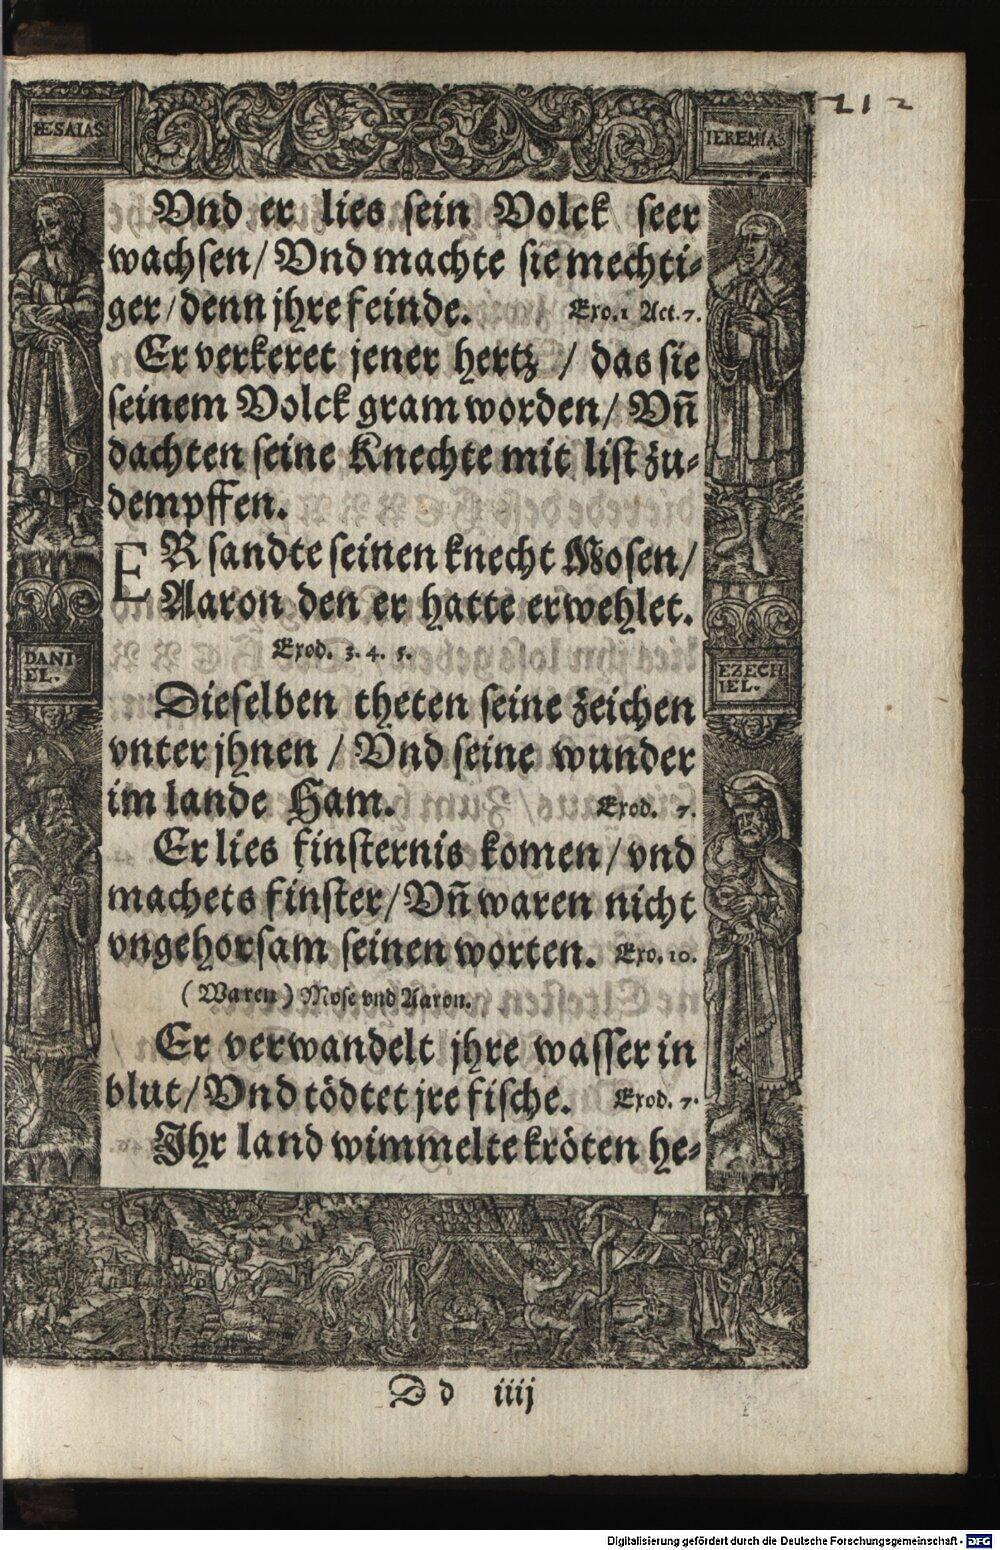 212
IESAIAS
IEREMIAS
Vnd er lies sein Volck seer
wachsen / Vnd machte sie mechti-
ger / denn jhre feinde. Exo. 1 Act. 7.
Er verkeret jener hertz / das sie
seinem Volck gram worden / Vñ
dachten seine Knechte mit list zu-
dempffen.
ER sandte seinen knecht Mosen /
Aaron den er hatte erwehlet.
Exod. 3. 4. 5.
DANI-
EL.
EZECH
IEL.
Dieselben theten seine zeichen
vnter jhnen / Vnd seine wunder
im lande Ham. Exod. 7.
Er lies finsternis komen / vnd
machets finster / Vñ waren nicht
vngehorsam seinen worten. Exo. 10.
(Waren) Mose vnd Aaron.
Er verwandelt jhre wasser in
blut / Vnd tödtet jre fische. Exod. 7.
Jhr land wimmelte kröten he-
D d iiij
Digitalisierung gefördert durch die Deutsche Forschungsgemeinschaft - DFG